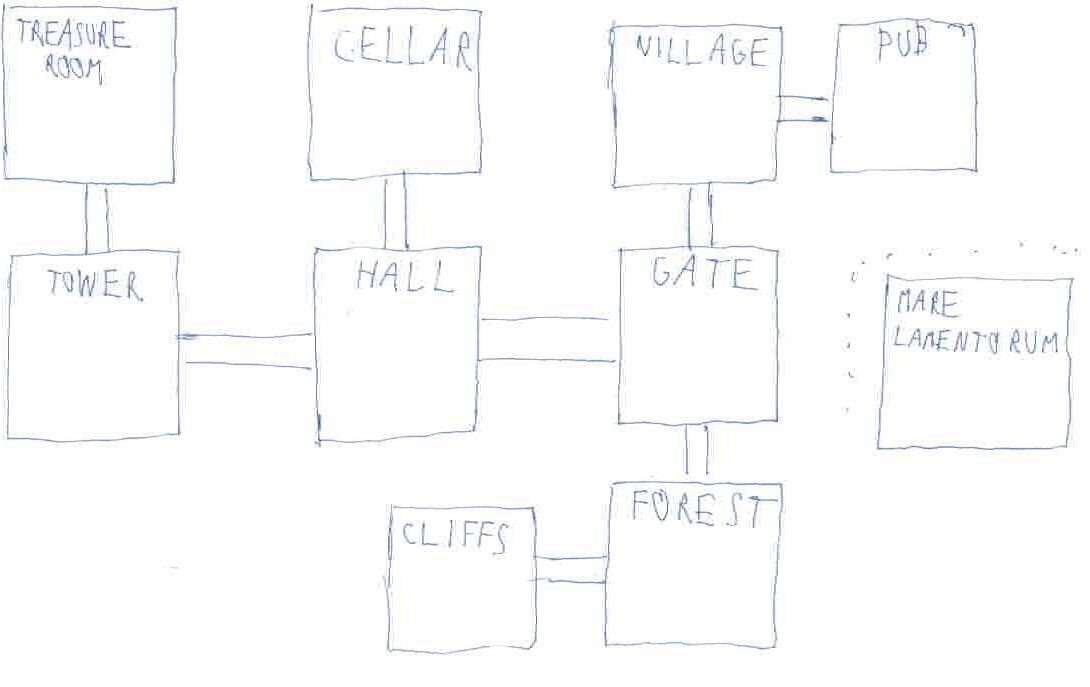 TREASURE
ROOM
CELLAR
VILLAGE
PUB
TOWER
HALL
GATE
MARE
LAMENTORUM
CLIFFS
FOREST